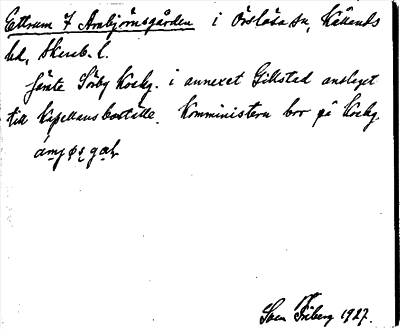 Ettrum 7 Arnbjörnsgården i Örslösa sn, Kållands
hd, Skarab. l.
jämte Sörby Kockg. i annexet Gillstad anslaget
till kapellansboställe. Komministern bor på Kockg.
Sven Friberg 1927.